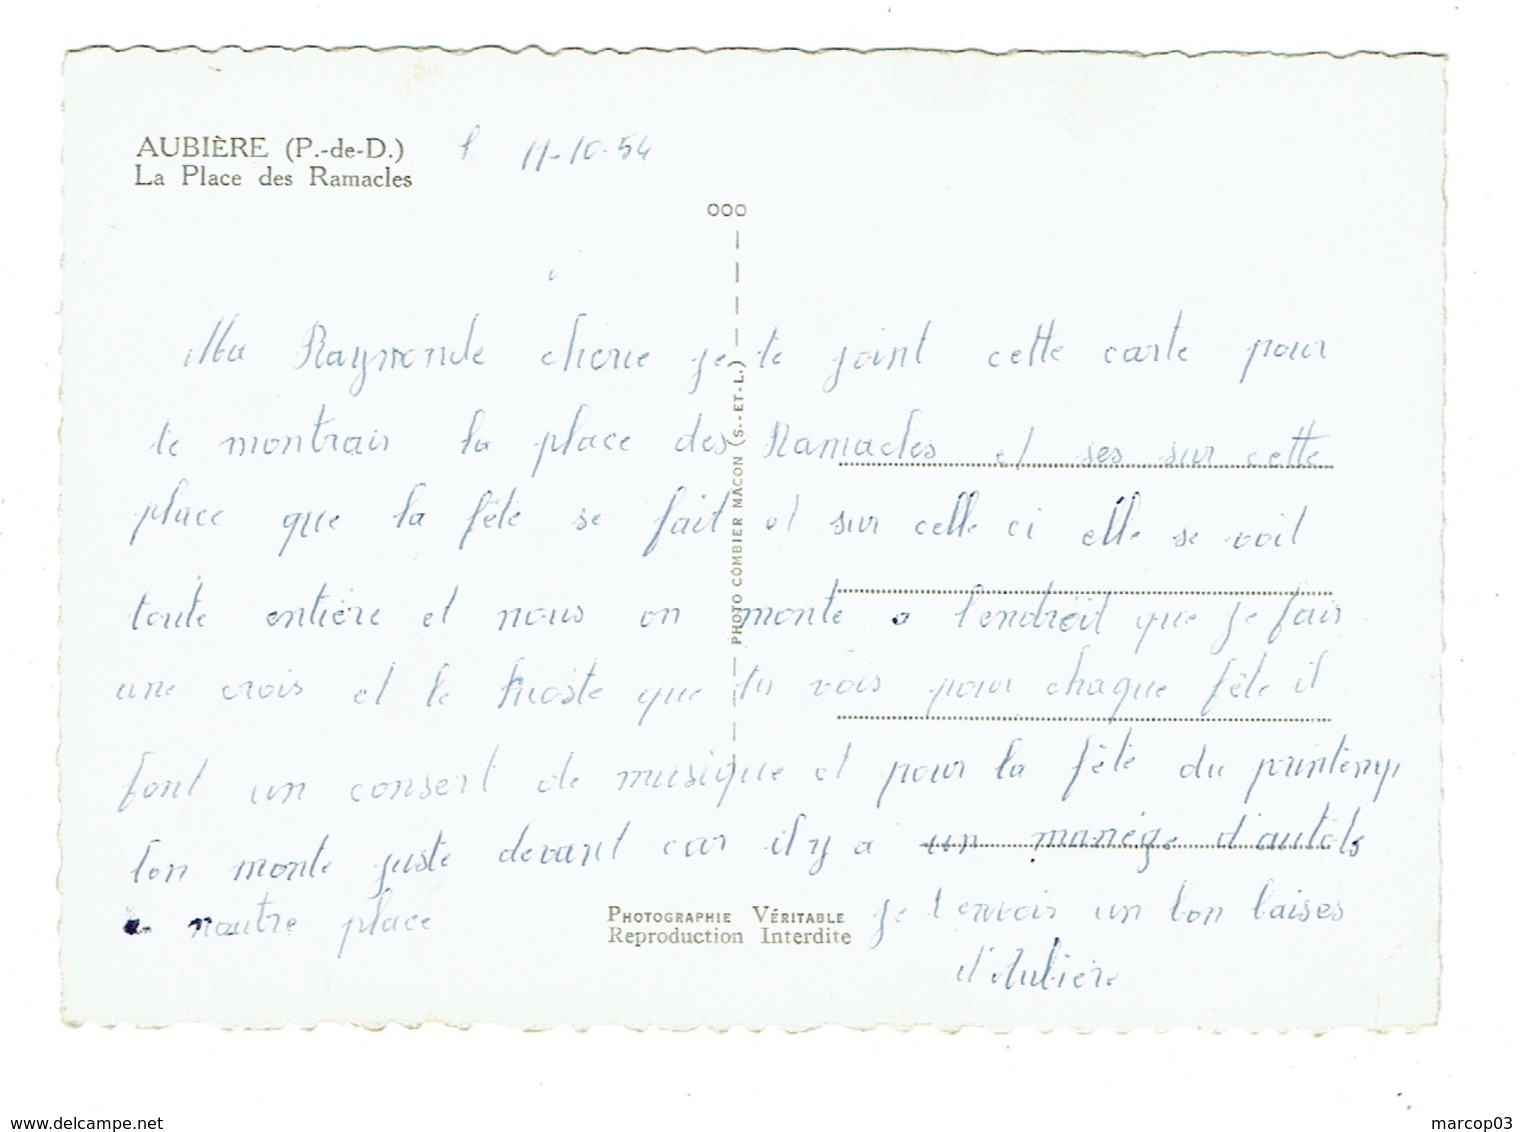 AUBIÈRE (P.-de-D.)
La Place des Ramacles
11-10-54
Ma Raymonde cherie je te joint cette carte pour
te montrair la place des Ramacles et ses sur cette
place que la fête se fait et sur celle ci elle se voit
toute entière et nous on monte a l'endroit que je fair
une crois et le kioste que tu vois pour chaque fête il
font un consert de musique et pour la fête du printemp
lon monte juste devant car il y a un manége d'autots
a nautre place
je t'envoir un bon baises
d'Aubière
PHOTO COMBIER MACON (S.-ET-L.)
PHOTOGRAPHIE VÉRITABLE
Reproduction Interdite
www.delcampe.net
marcop03